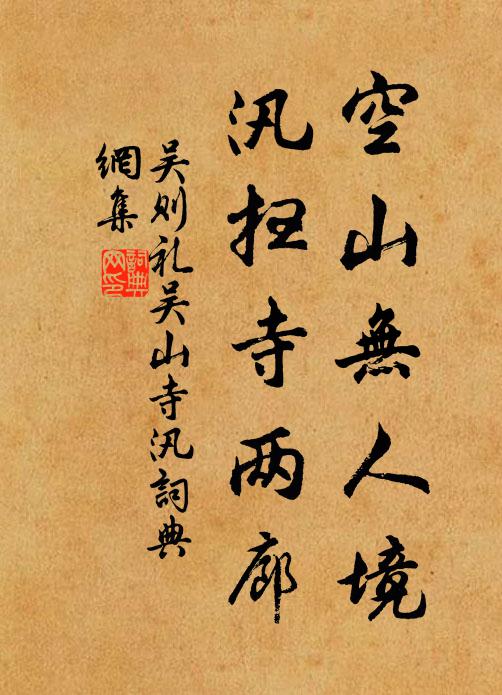 空山無人境
汎扫寺两廊
吴则礼吴山寺汎詞典
網集
詞典网印